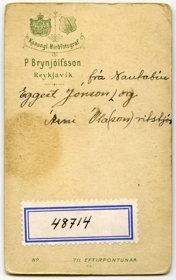 Kgl. Hirðfotograf
P. Brynjólfsson
Reykjavik.
frá Nautabúi
Eggert Jónsson / og
Árni Óla(son) ritstjóri
48714
No.
TIL EFTIRPÖNTUNAR.